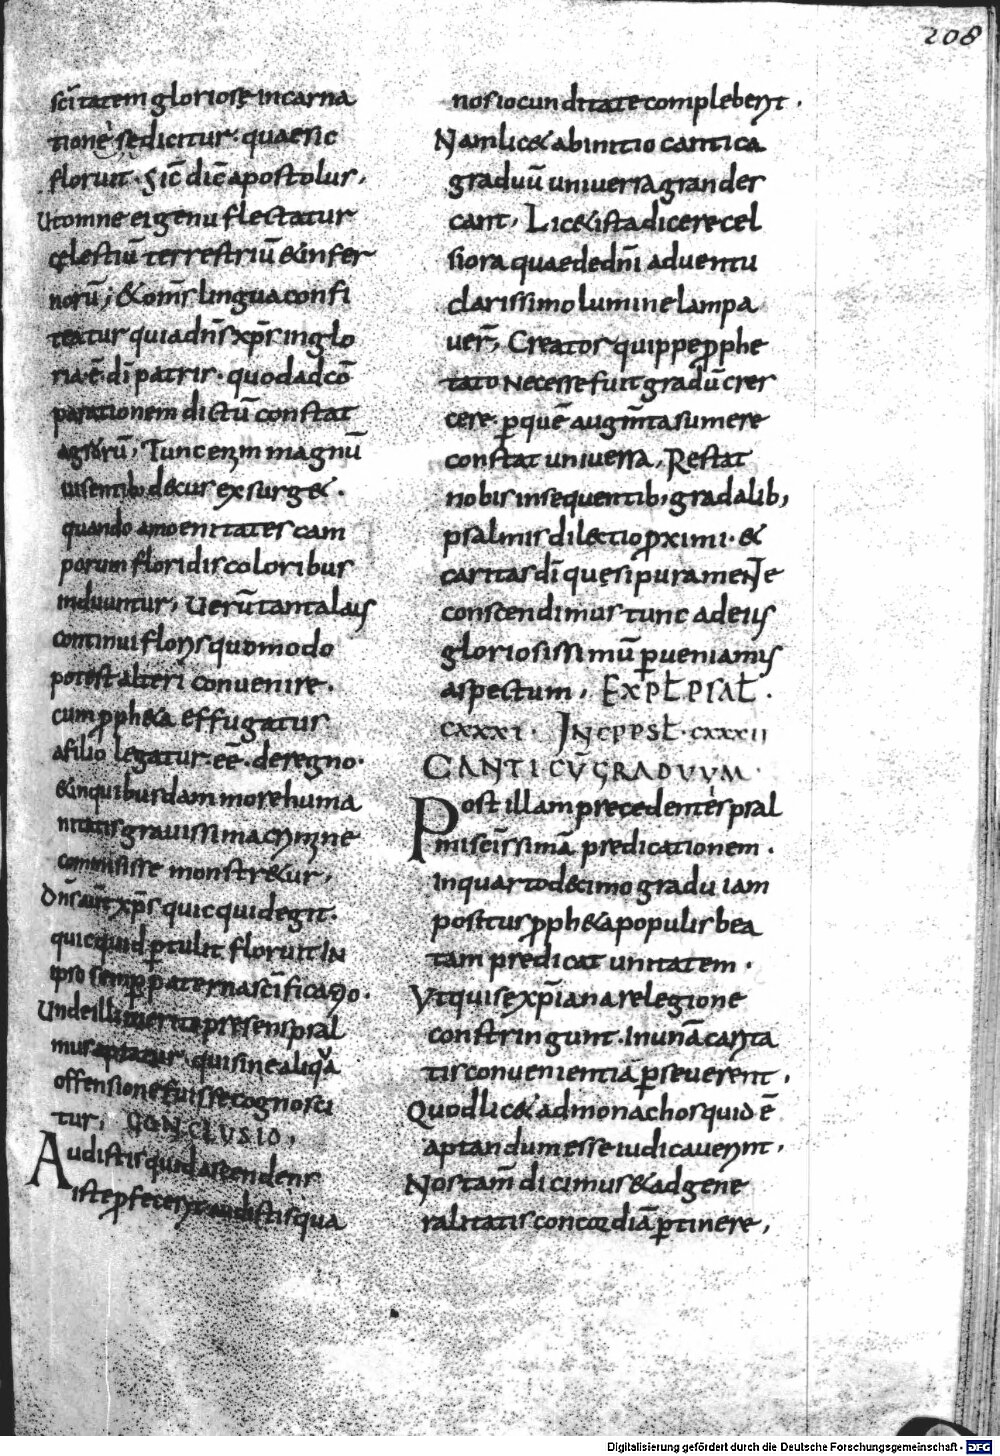 208
scītatem gloriosę incarna
tionē sedicitur· quaesic
floruit· Sic̄ dic̄ apostolus,
Ut omne ei genu flectatur
cęlestiū terrestriū & infer
norū; & om̄s lingua confi
teatur quia dn̄s xp̄s in glo
ria ē dī patris· quod ad cō
parationem dictū constat
agrorū; Tunc enim magnū
visentib; decus exsurg&·
quando amoenitates cam
porum floridis coloribus
induuntur; Verū tanta laus
continui floris quomodo
potest alteri convenire·
cum pph&a effugatus
a filio legatur· eē· deregno·
& in quibusdam more huma
nitatis gravissima crimine
commisisse monstr&ur;
Dn̄s aut̄ xp̄s quicquid egit·
quicquid ptulit floruit IN
ipso semp paterna scīficatio·
Unde illi merito presens psal
mus aptatur· qui sine aliqa
offensione fuisse cognosci
tur; CONCLUSIO;
Audistis quid ascendens
iste pfecerit audistis qua
nos iocunditate compleberit·
Nam lic& ab initio cantica
graduū universa grandes
cant; Lic& ista dicere cel
siora quae de dn̄i adventu
clarissimo lumine lampa
ver̄; Creator quippe pphe
tato Necesse fuit gradū cres
cere· p quē augm̄ta sumere
constat universa; Restat
nobis insequentib; gradalib;
psalmis dilectio pximi· &
caritas dī que si pura meNte
conscendimus tunc ad eiis
gloriosissimū pveniamus
aspectum; EXPŁ PSAŁ·
CXXXI· INCP PSŁ· CXXXII
CANTICŪ GRADUUM·
Post illam precedentes psal
mi scīssimā predicationem·
In quarto decimo gradu iam
positus pph&a populis bea
tam predicat unitatem·
Ut qui se xp̄iana relegione
constringunt· In unā carita
tis convenientiā pseverent;
Quod lic& ad monachos quidē
aptandum esse iudicaverint;
Nos tam̄ dicimus & ad gene
ralitatis concordiā ptinere;
Digitalisierung gefördert durch die Deutsche Forschungsgemeinschaft - DFG